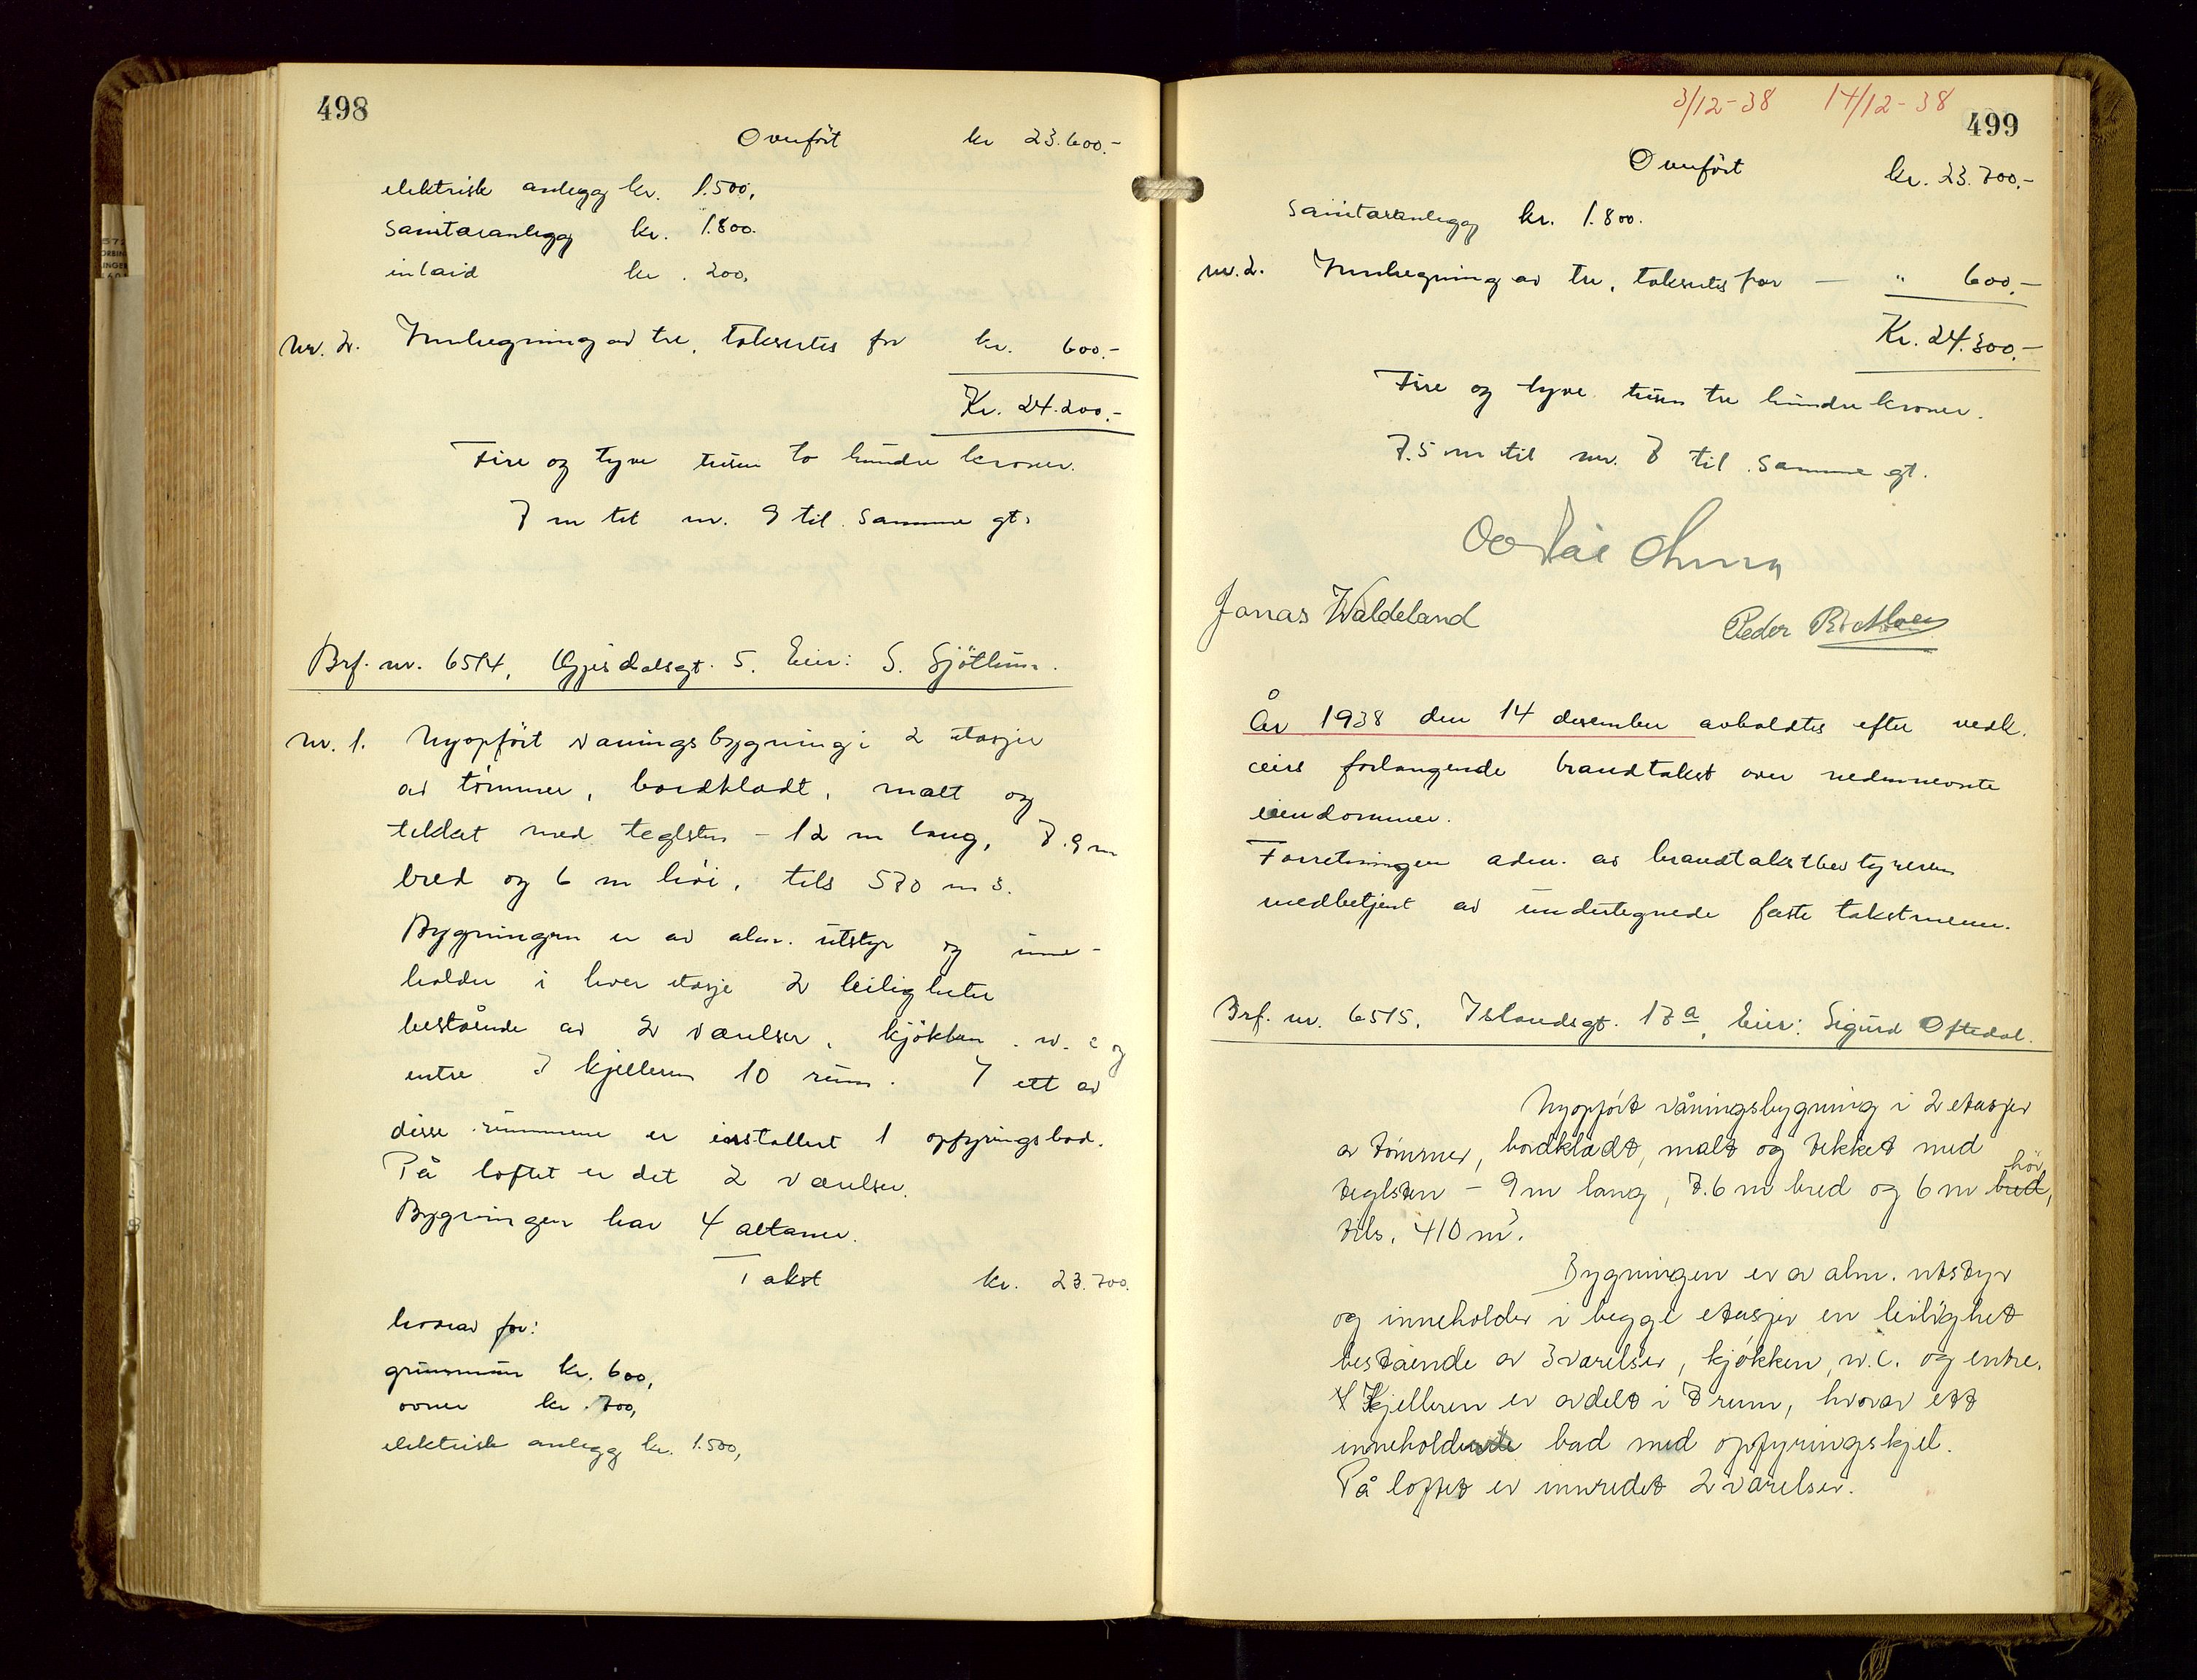 498
Overført kr 23.600.-
elektrisk anlegg kr. 1.500,
sanitæranlegg kr. 1.800.
inlaid kr. 200,
nr. 2. Innhegning av tre, takseres for kr. 600.-
Kr. 24.200.-
Fire og tyve tusen to hundre kroner.
7 m til nr. 9 til samme gt.
Brf. nr. 6514, Gjesdalsgt. 5. Eier: S.
nr. 1. Nyopført våningsbygning i 2 etasjer
av tømmer, bordklædt, malt og
tekket med teglsten - 12 m lang, 7.9 m
bred og 6 m høi, tils 570 m3.
Bygningen er av alm. utstyr og inne-
holder i hver etasje 2 leiligheter
bestående av 2 værelser, kjøkken, w. c og
entre I kjelleren 10 rum. I ett av
disse rummene er installert 1 opfyringsbad.
På loftet er det 2 værelser.
Bygningen har 4 altaner.
Takst kr. 23.700.
hvorav for:
grunnmur kr. 600,
ovner kr. 700,
elektrisk anlegg kr. 1.500,
3/12-38 14/12-38
499
Overført kr. 23.700.-
sanitæranlegg kr. 1.800.
nr. 2. Innhegning av tre, takseres for — " 600.-
Kr. 24.300.-
Fire og tyve tusen tre hundre kroner.
7.5 m til nr. 7 til samme gt.
Jonas Waldeland
Peder
År 1938 den 14 desember avholdtes efter vedk.
eiers forlangende brandtakst over nedennevnte
eiendommer.
Forretningen adm. av brandtakstbestyreren
medbetjent av undertegnede faste takstmenn.
Brf. nr. 6515. Islandsgt. 17a, Eier: Sigurd Oftedal.
Nyopført våningsbygning i 2 etasjer
av tømmer, bordklædt, malt og tekket med
teglsten - 9 m lang, 7.6 m bred og 6 m bred, høi
tils. 410 m3.
Bygningen er av alm. utstyr
og inneholder i begge etasjer en leilighet
bestående av 3 værelser, kjøkken, w.c. og entre.
Kjelleren er avdelt i 7 rum, hvorav ett
inneholder bad med opfyringskjel.
På loftet er innredet 2 værelser.